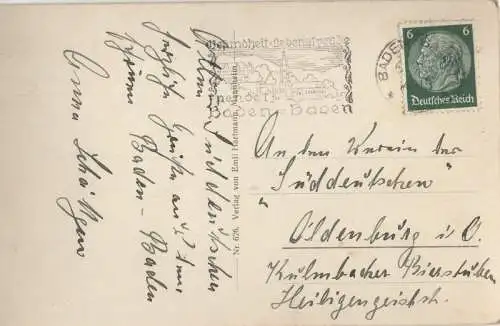 Allen Süddeutschen
herzliche Grüße aus dem
schönen Baden-Baden
Anna
Nr. 626. Verlag von Emil Hartmann, Mannheim.
Gesundheit-Lebensfreude
spendet
Baden-Baden
BADEN
6 6
Deutsches Reich
An den Verein der
"Süddeutschen"
Oldenburg i. O.
Kulmbacher Bierstuben
Heiligengeiststr.